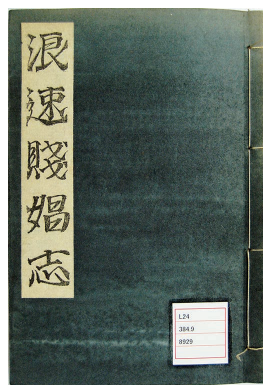 浪速賤娼志
L24
384.9
8929